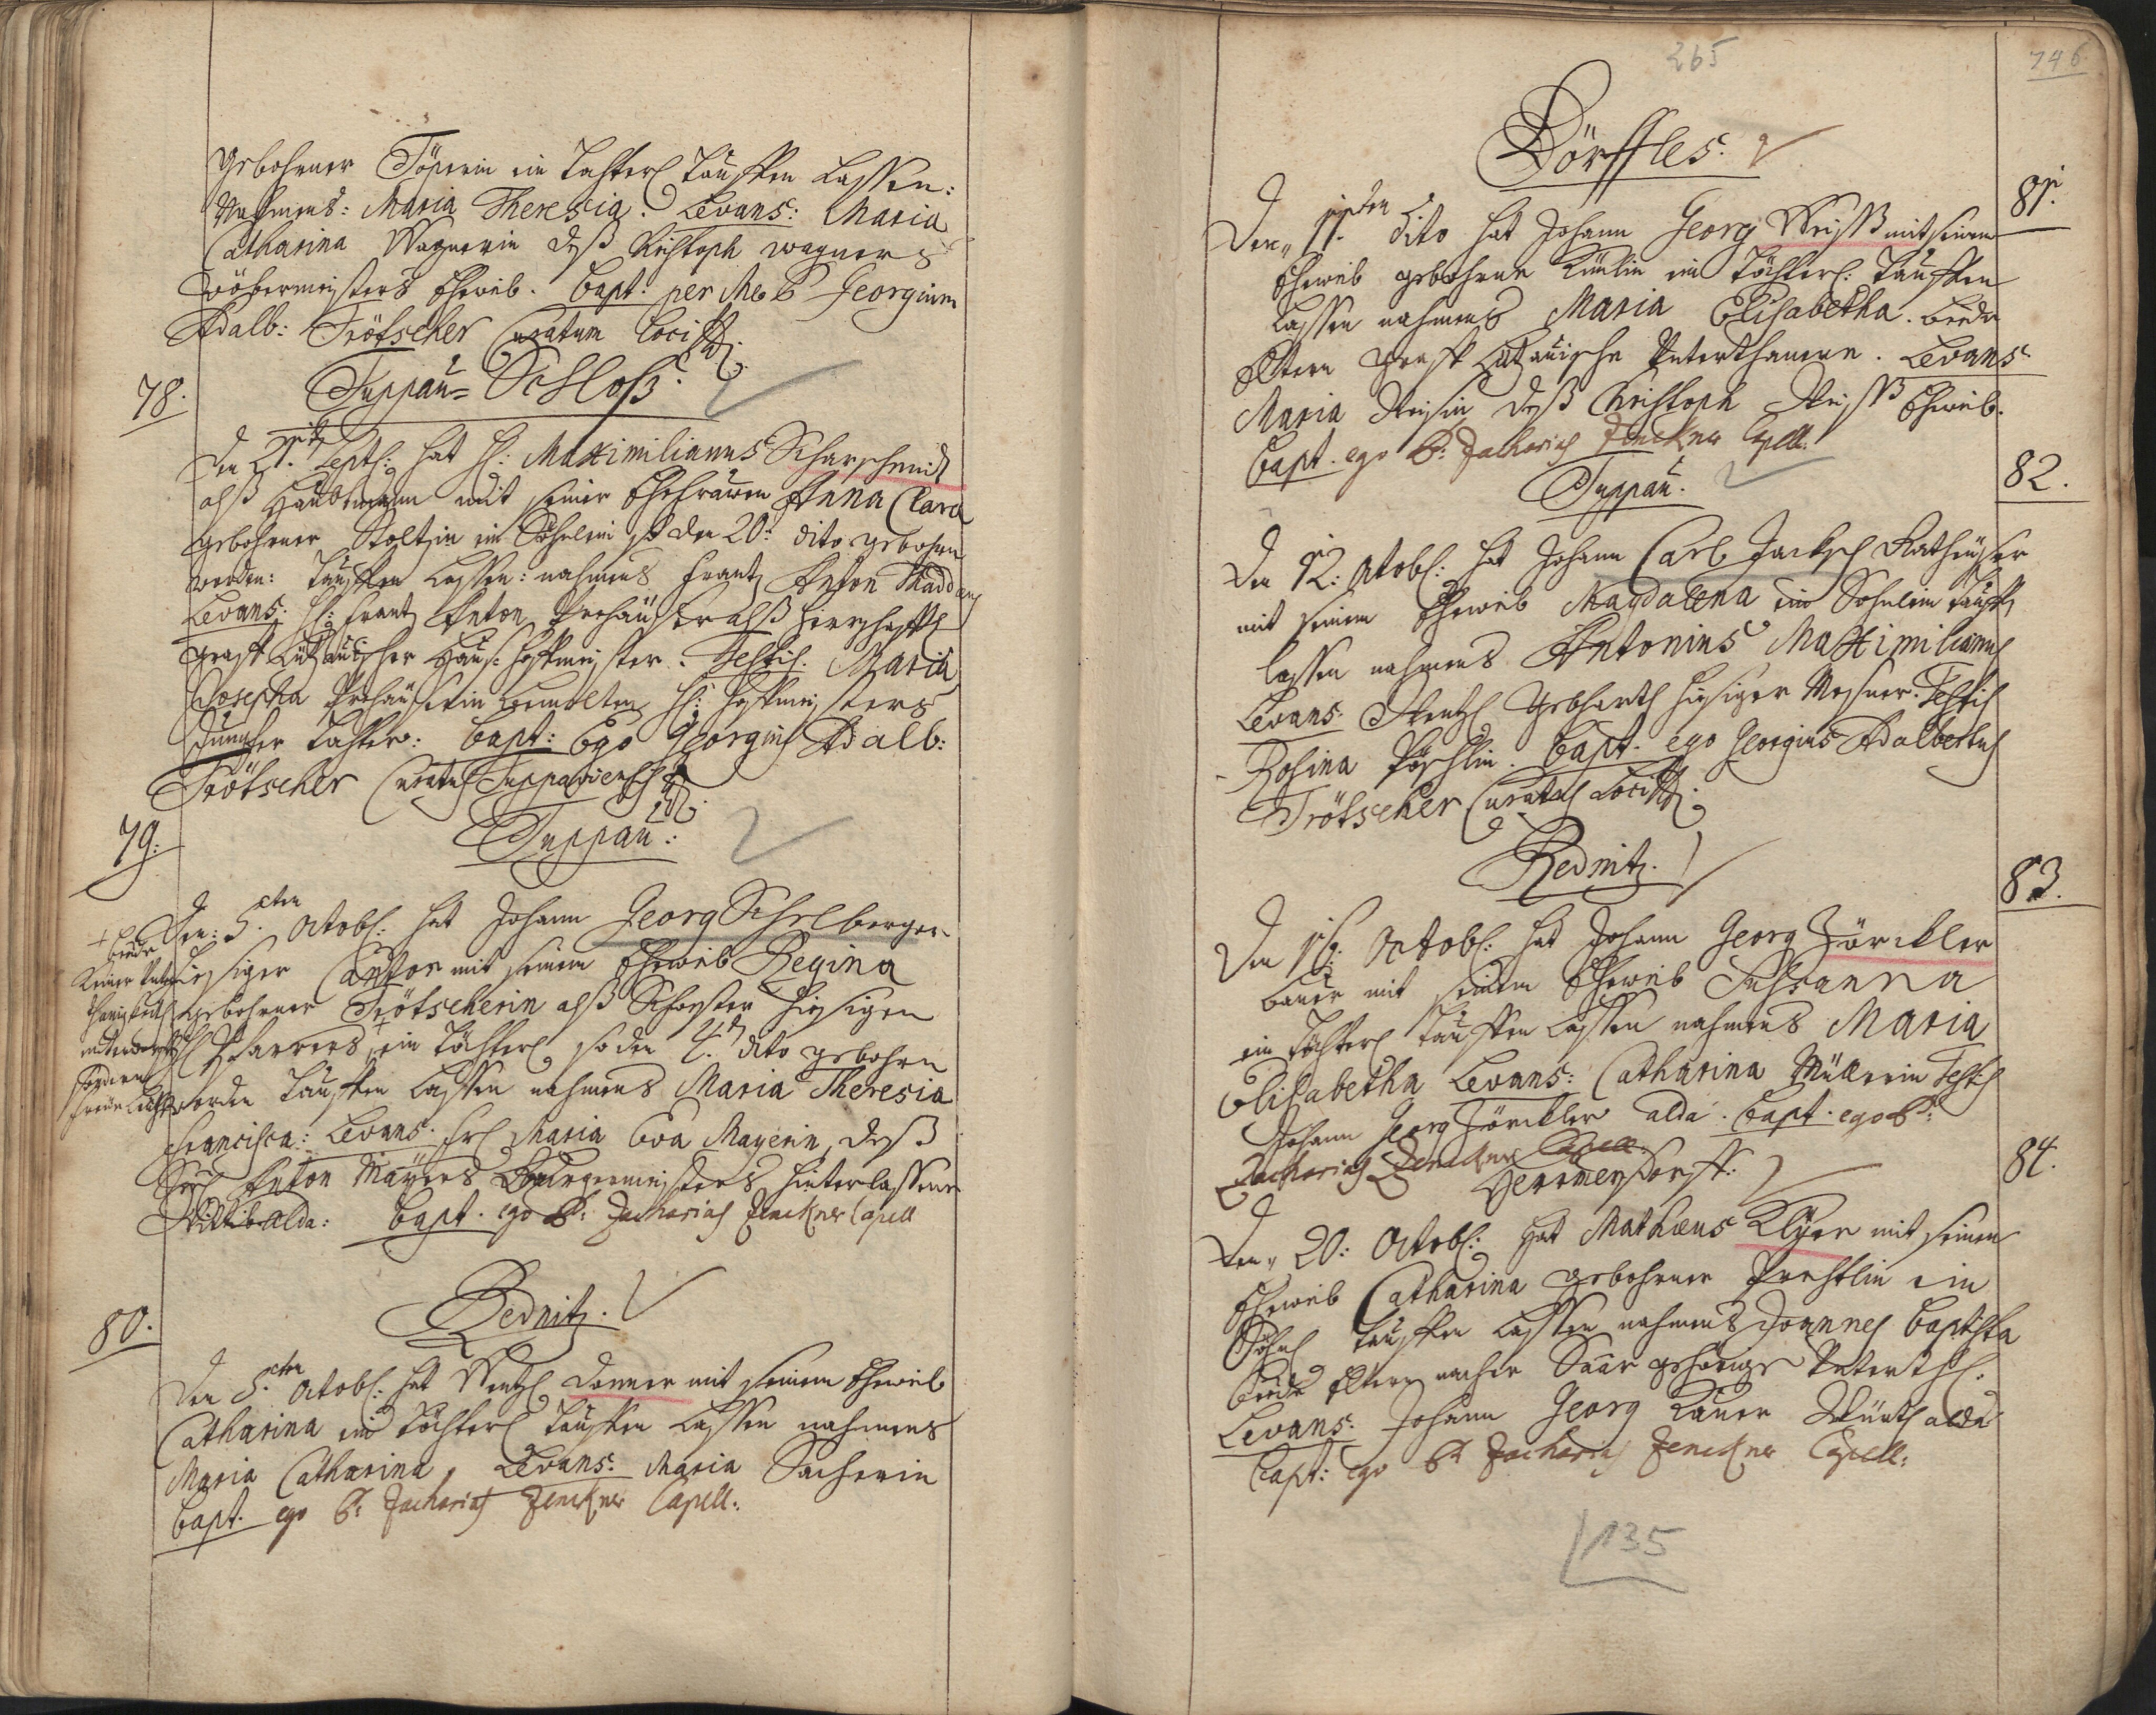 gebohrner Töpperin ein Tochterl tauffen lassen:
Nahmens: Maria Theresia. Levans: Maria
Catharina Wagnerin deß Christoph wagners
Wöbermeisters Eheweib. Bapt: per me P Georgium
Adalb: Trötscher Curatum loci
78.
Duppau= Schloß.
Den 21. Septb: hat H: Maximilianus Scharschmid
alß Haubtmann mit seiner Ehefrauen Anna Clara
gebohrner Stoltzin ein Söhnlein so den 20: dito gebohren
worden: tauffen lassen: nahmens Frantz Anton Thaddaeus
Levans: H: Frantz Anton alß Herrschafftl
graff Lützauischer Hauß Hoffmeister. Testis. Maria
Josepha H: Hoffmeisters
Jungfer Tochter: Bapt: Ego Georgius Adalb:
Trötscher Curatus Duppaviensis
79.
Duppau:
Den: 5.ten Octob: hat Johann Georg Schelberger
hiesiger Cantor mit seinem Eheweib Regina
gebohrner Trötscherin alß Schwester hiesigen
H Pfarrers + ein Töchterl so den 4.t dito gebohrn
worden tauffen lassen nahmens Maria Theresia
Francisca: Levans. Fr: Maria Eva Mayerin, deß
Anton Mayers Burgermeisters hinterlassene
Wittib alda: Bapt. ego P: Zacharias Zenckner Capell
+ beede
keiner Unter
thänigkeit
unterworffen
sondern
freue Leuth
80.
Rednitz.
Den 8.ten Octob: hat Wentzl Donner mit seinem Eheweib
Catharina ein Töchterl tauffen lassen nahmens
Maria Catharina, Levans: Maria Sacherin
Bapt. ego P: Zacharias Zenckner Capell:
265
746
Dörffles.
81.
Den 11.ten dito hat Johann Georg Weiß mit seinem
Eheweib gebohrne ein Töchterl: tauffen
lassen nahmens Maria Elisabetha. beede
Eltern graff Lützauische Unterthanen. Levans
Maria Weisin deß Christoph Weiß Eheweib.
Bapt. ego P: Zacharias Zenckner Capell:
82.
Duppau.
Den 12: Octob: hat Johann Carl Jacksch
mit seinem Eheweib Magdalena ein Söhnlein tauffen
lassen nahmens Antonius Maximilianus
Levans: Wentzl Gebhardt hiesiger Mesner. Testis
Rosina Pöschlin. Bapt. ego Georgius Adalbertus
Trötscher Curatus Loci
83.
Rednitz.
Den Octob: hat Johann Georg Zörckler
Bauer mit seinem Eheweib Susanna
ein Töchterl tauffen lassen nahmens Maria
Elisabetha Levans: Catharina Müllerin Testis
Johann Georg Zörckler alda. Bapt. ego P:
Zacharias Zenckner Capell.
84.
Hermersdorff:
Den 20: Octob: hat Mathaeus Klyer mit seinem
Eheweib Catharina gebohrner ein
Söhnl tauffen lassen nahmens Joannes Baptista
beede Eltern nacher Saar gehörige Unterth:
Levans: Johann Georg Lauer Würth alda
Bapt: ego P: Zacharias Zenckner Capell:
135